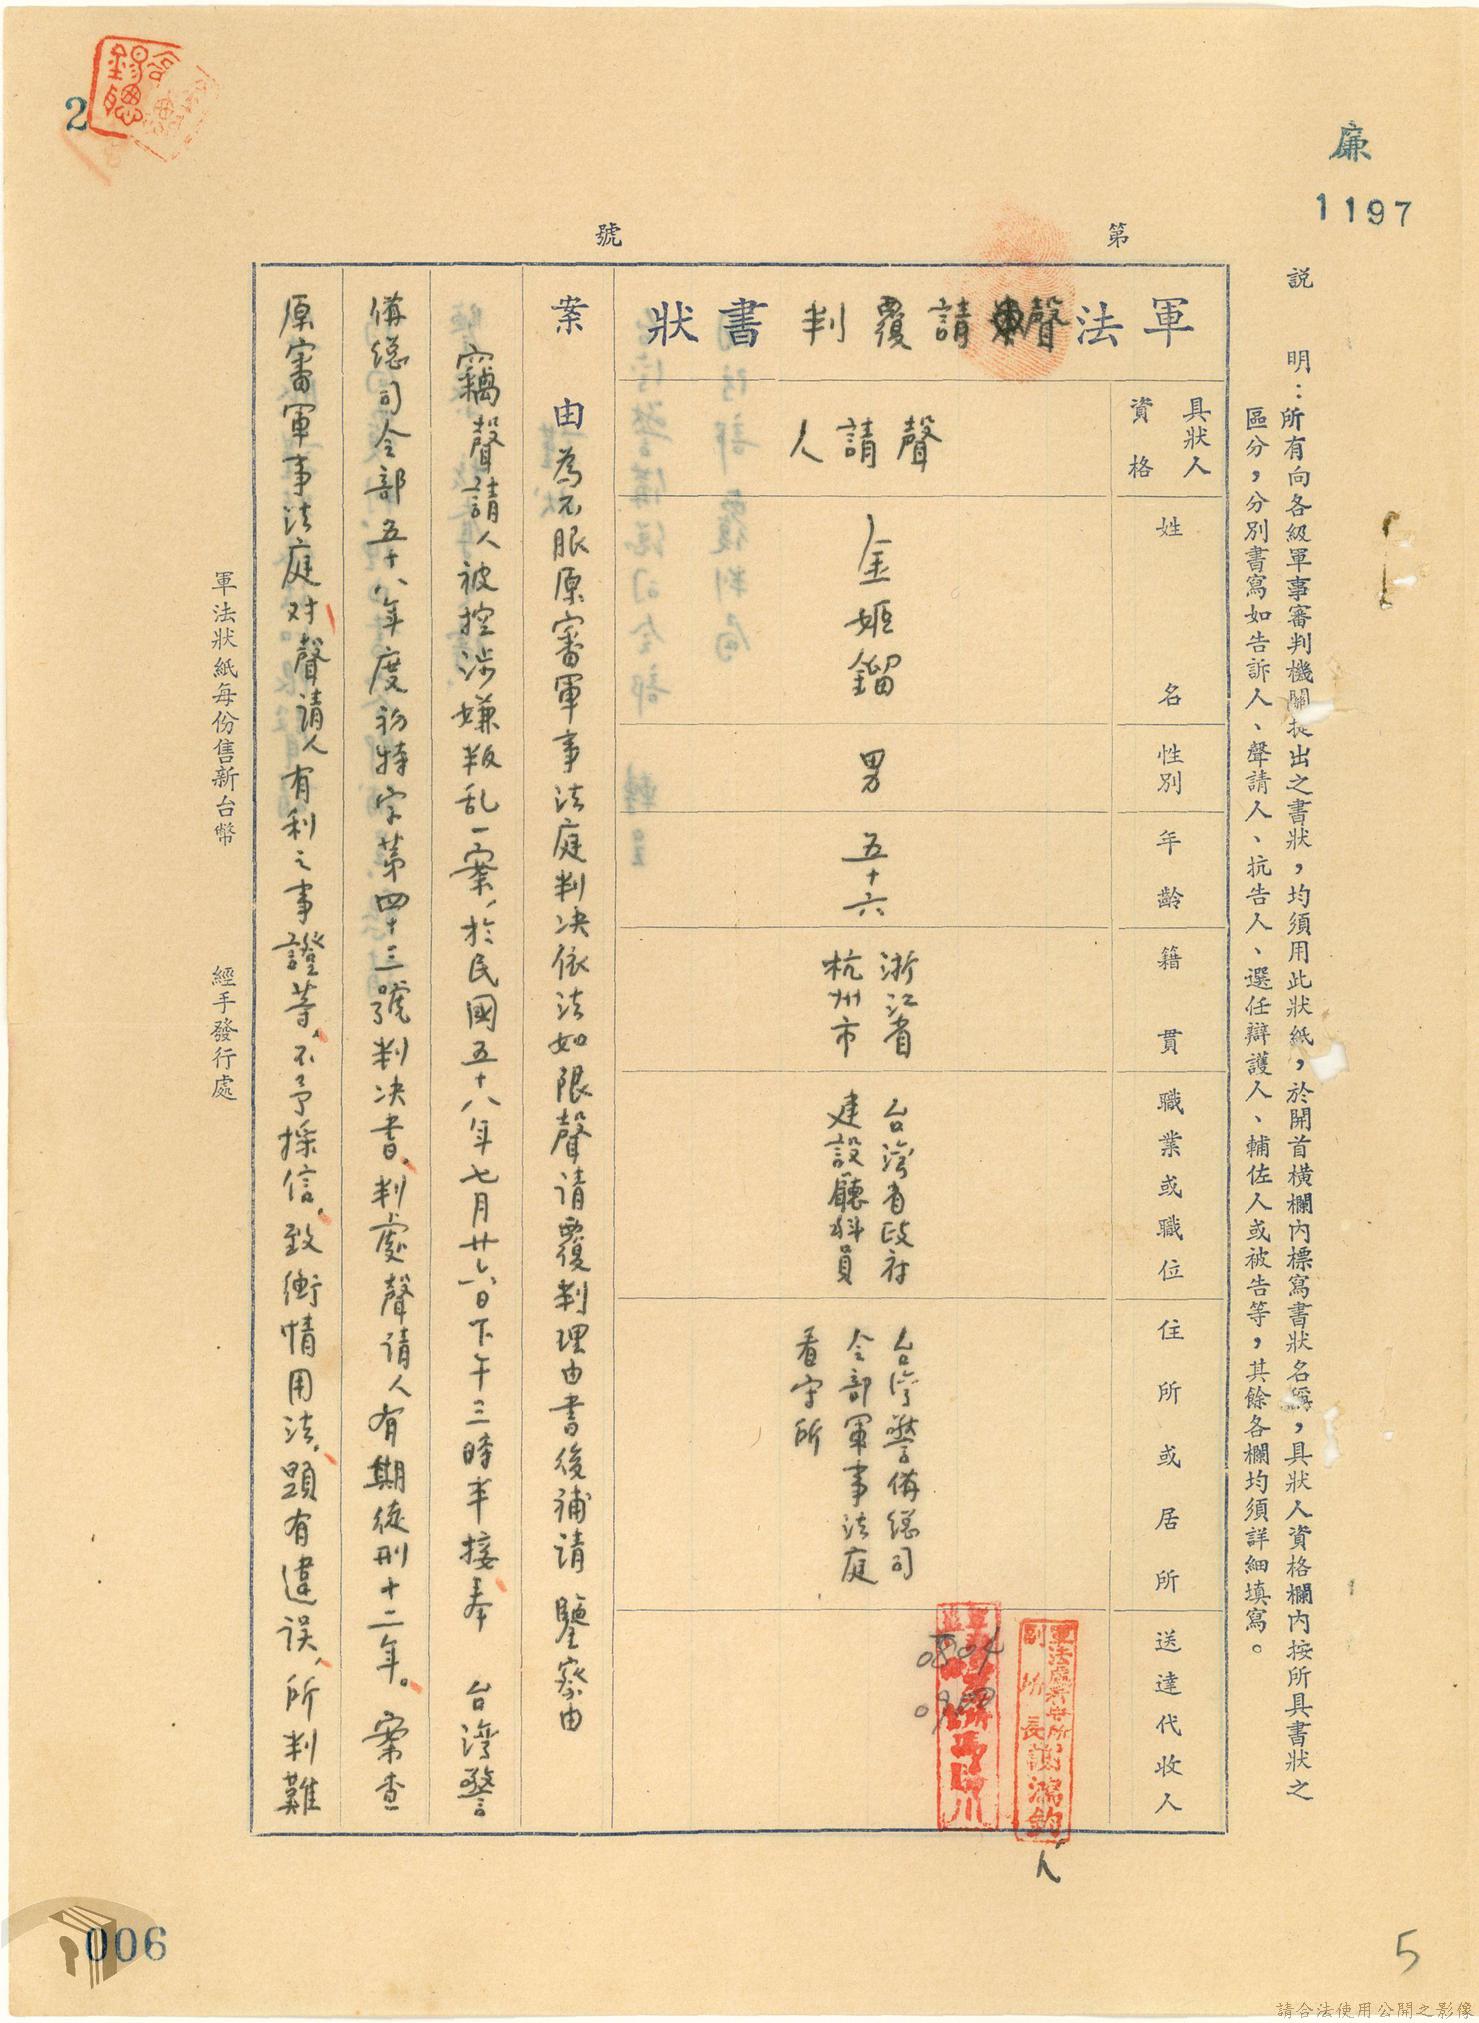 廉
1197
2
第 號
說明：所有向各級軍事審判機關提出之書狀，均須用此狀紙，於開首橫欄內標寫書狀名稱，具狀人資格欄內按所具書狀之
區分，分別書寫如告訴人、聲請人、抗告人、選任辯護人、輔佐人或被告等，其餘各欄均須詳細填寫。
軍法聲請覆判書狀
具狀人
資格
姓名
性別
年齡
籍貫
職業或職位
住所或居所
送達代收人
聲請人
金姬鎦
男
五十六
浙江省
杭州市
台灣省政府
建設廳科員
台灣警備總司
令部軍事法庭
看守所
軍法處看守所
副所長謝鴻鈞
案由
為不服原審軍事法庭判决依法如限聲请覆判理由書後補請 鑒察由
竊聲請人被控涉嫌叛乱一案，於民國五十八年七月廿六日下午三時半接奉 台灣警
備總司令部五十八年度初特字第四十三號判决書，判處聲请人有期徒刑十二年。案查
原審軍事法庭对聲请人有利之事證等，不予採信，致衡情用法，顕有違误，所判難
軍法狀紙每份售新台幣 經手發行處
006
5
請合法使用公開之影像